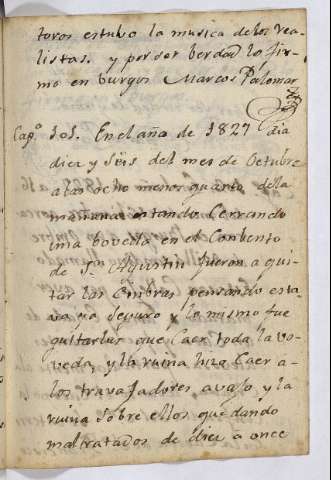 toros estubo la musica de los rea-
listas. y por ser berdad lo fir-
mo en burgos Marcos Palomar
Capº 101. En el año de 1827 dia
diez y seis del mes de Octubre
a las ocho menos quarto de la
mañana estando Cerrando
una bovella en el Conbento
de Sn Agustin fueron a qui-
tar las Cimbras pensando esta-
va ya seguro y lo mismo fue
quittarlas que Caer toda la vo-
veda, y la ruina hizo Caer a
los travajadores avajo y la
ruina sobre ellos quedando
maltratados de diez a once